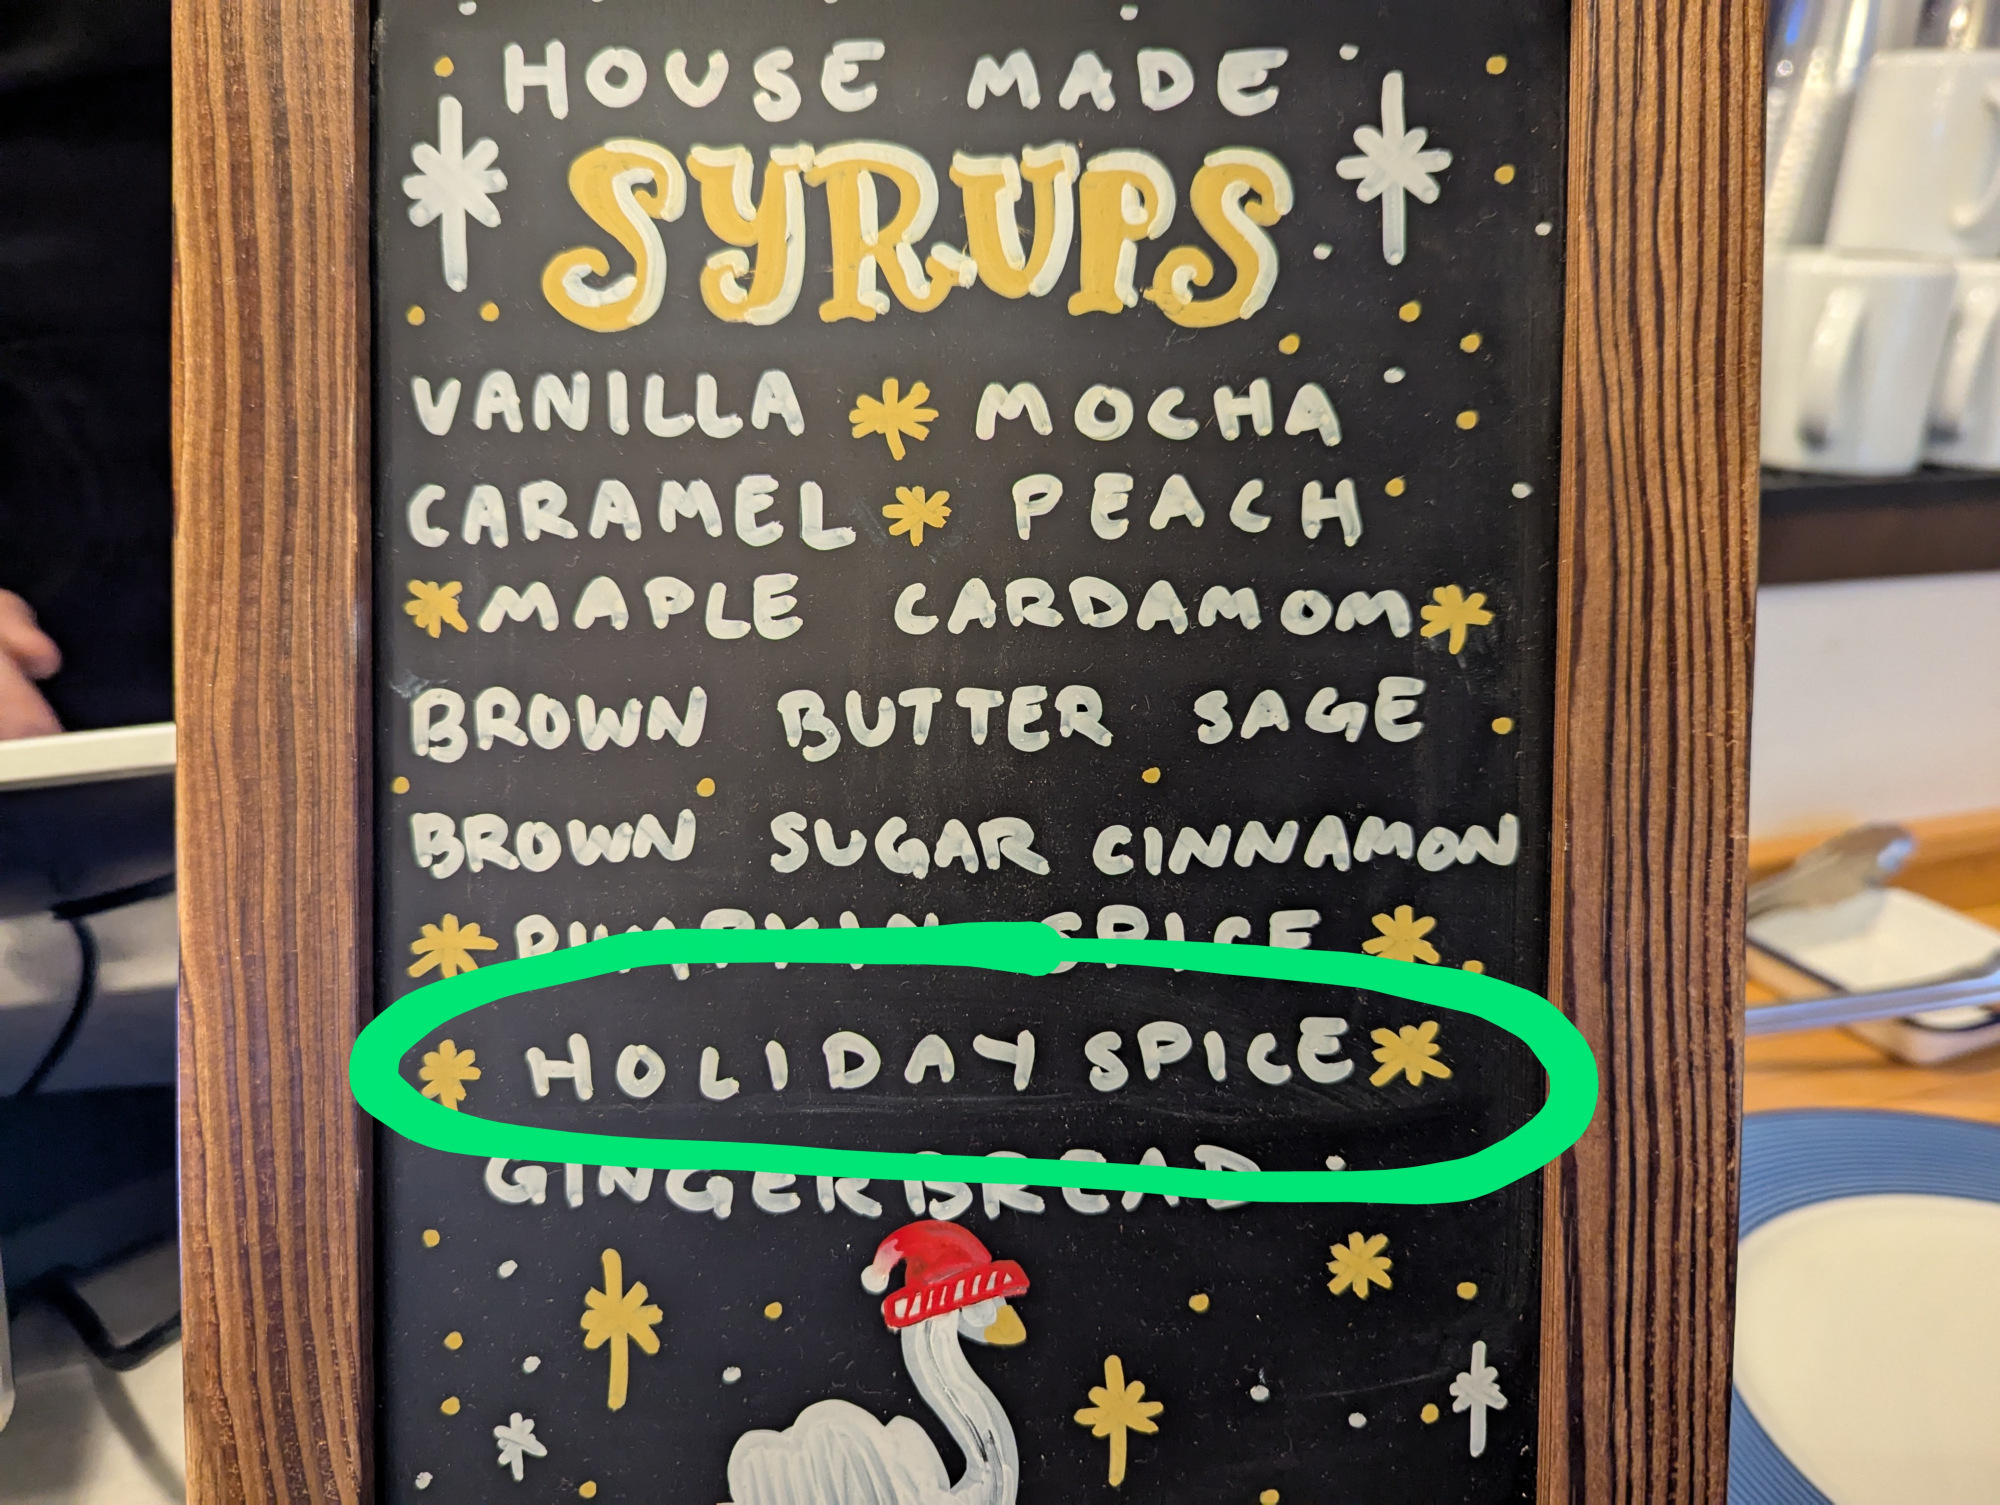 HOUSE MADE
SYRUPS
VANILLA * MOCHA
CARAMEL * PEACH
* MAPLE CARDAMOM *
BROWN BUTTER SAGE
BROWN SUGAR CINNAMON
* PUMPKIN SPICE *
* HOLIDAY SPICE *
GINGERBREAD